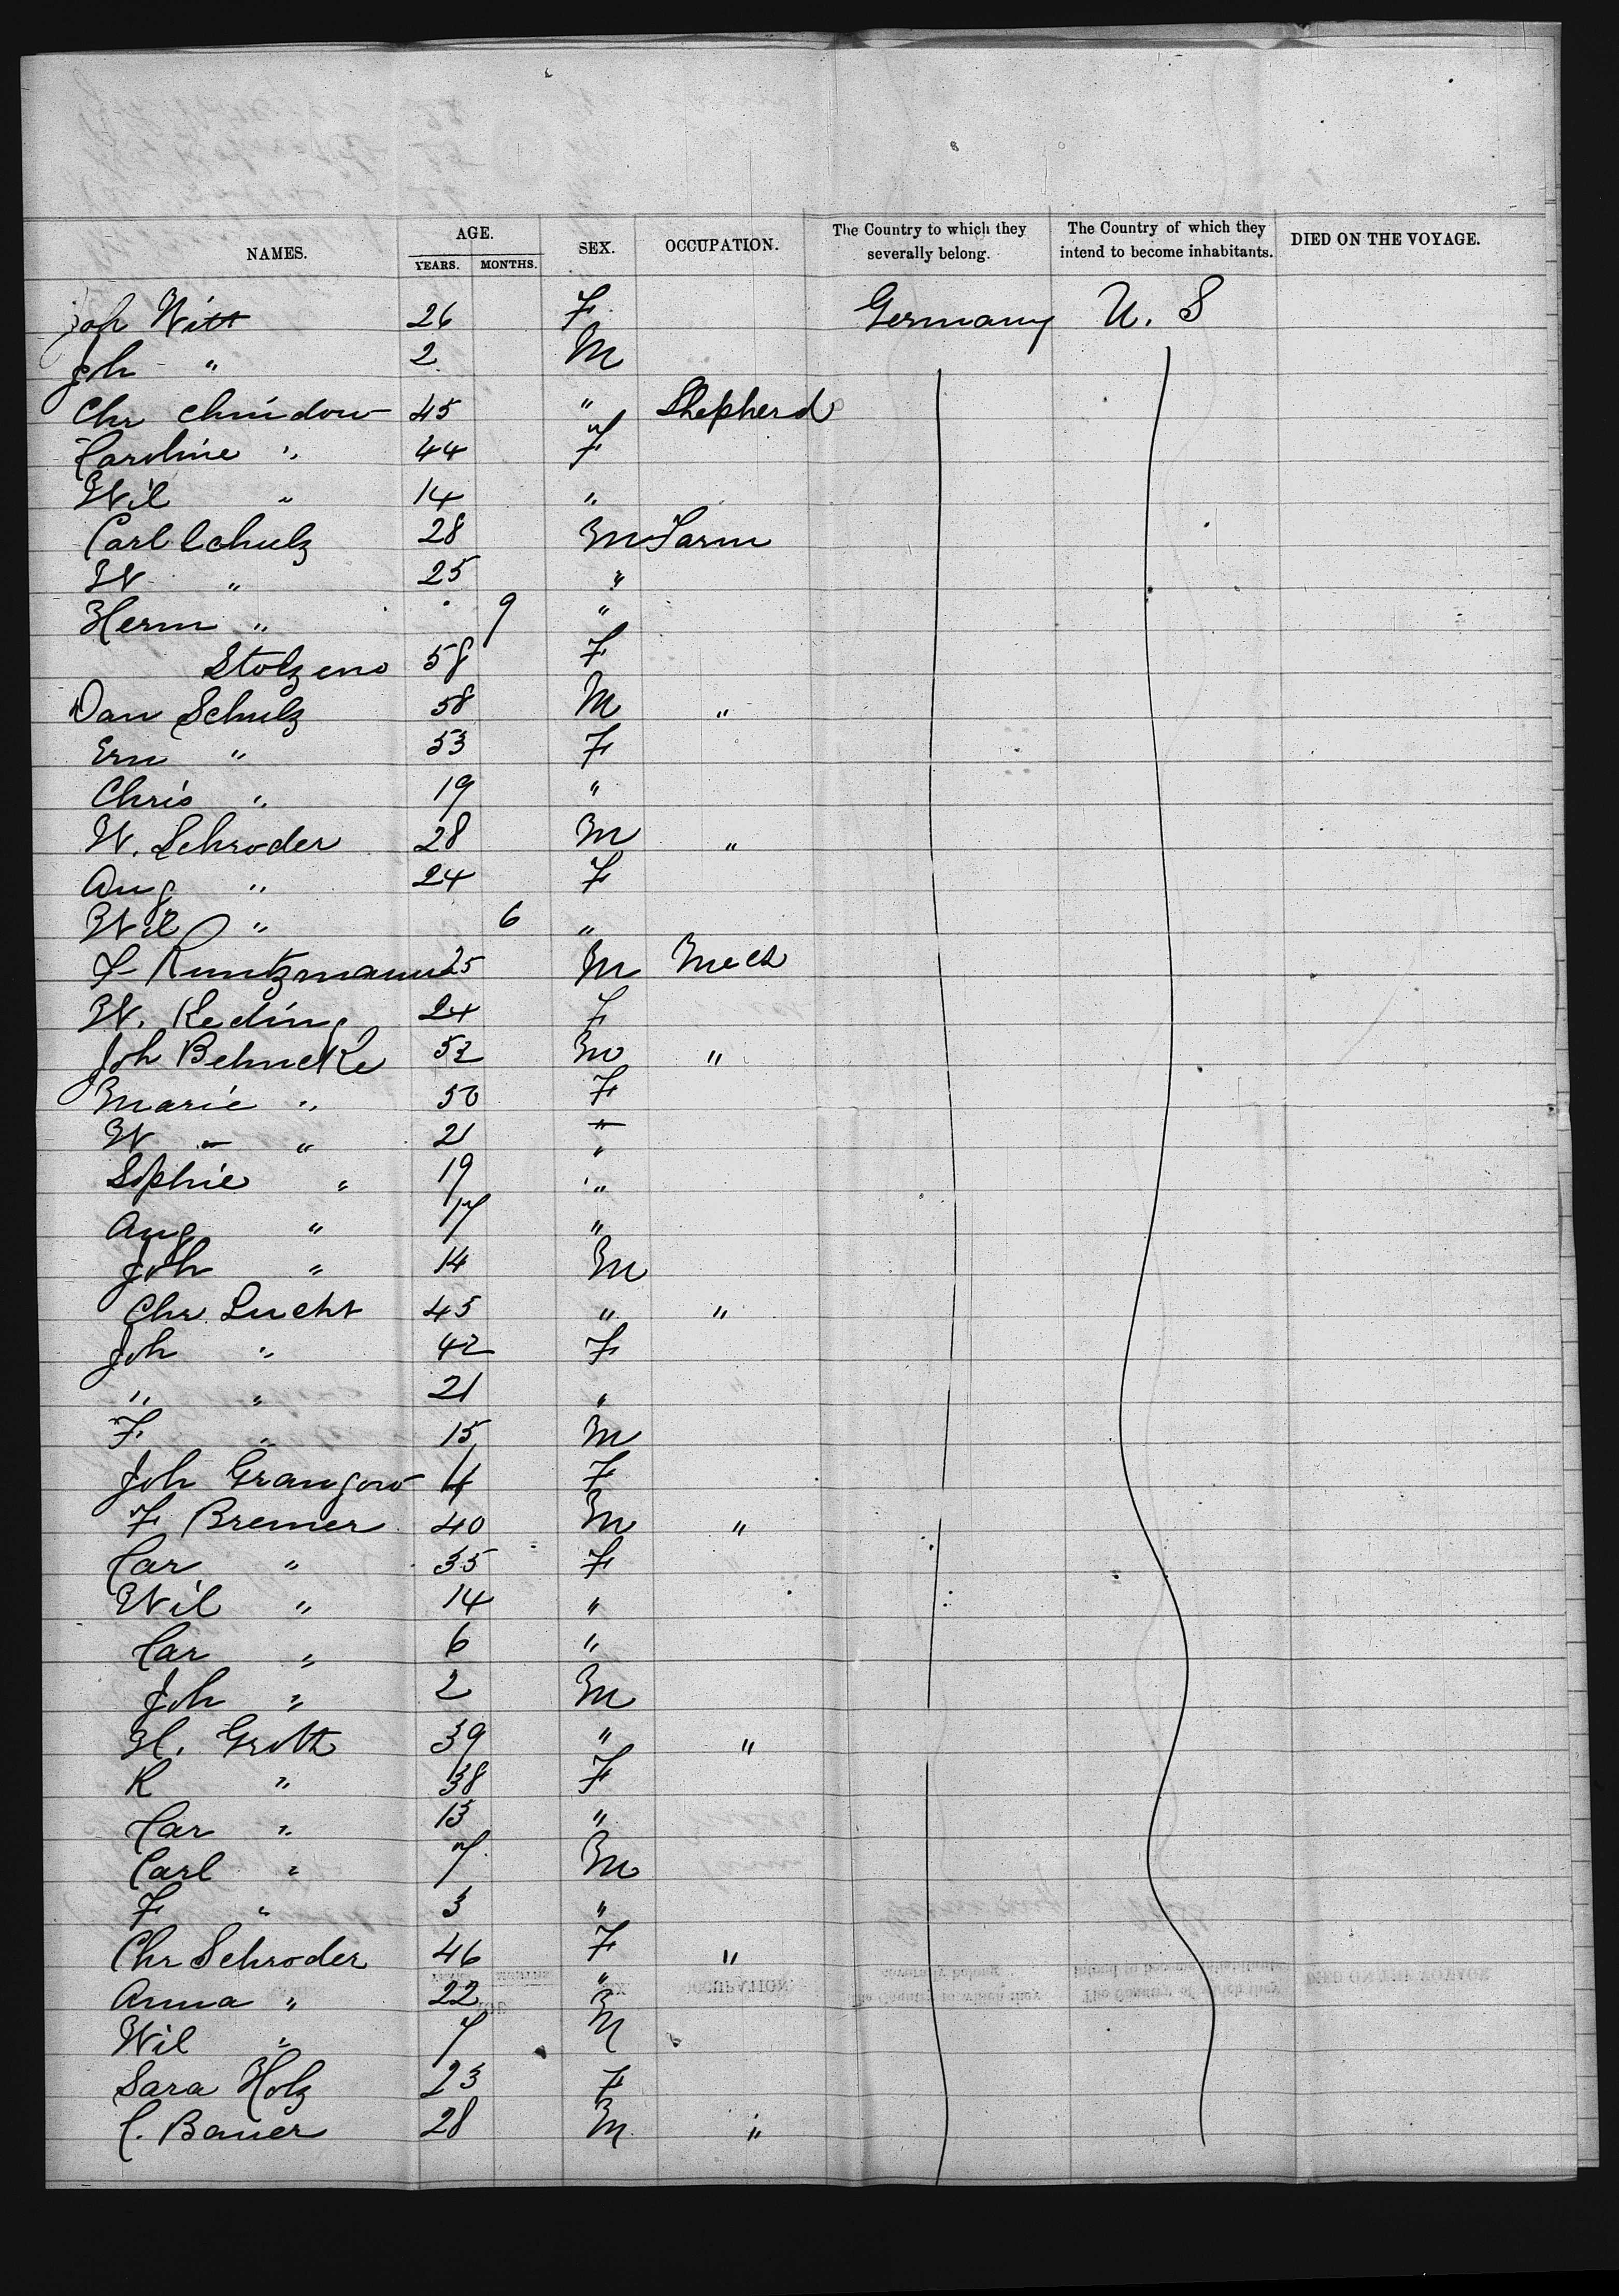 NAMES. AGE. YEARS. MONTHS. SEX. OCCUPATION. The Country to which they severally belong. The Country of which they intend to become inhabitants. DIED ON THE VOYAGE.
Joh Witt 26 F Germany U. S
Joh " 2 M
Chr Chindow 45 " Shepherd
Caroline " 44 F
Wil " 14 "
Carl Schulz 28 M Farm
W " 25 "
Herm " 9 "
Stolzeno 58 F
Dan Schulz 58 M "
Ern " 53 F
Chris " 19 "
W. Schroder 28 M "
Aug " 24 F
Wil " 6 "
F Kuntzmann 25 M Mech
W. Reding 24 F
Joh Behncke 52 M "
Marie " 50 F
W " 21 "
Sophie " 19 "
Aug " 17 "
Joh " 14 M
Chr. Lucht 45 " "
Joh " 42 F
" " 21 "
F " 15 M
Joh Grangow F
F Bremer 40 M "
Car " 35 F
Wil " 14 "
Car " 6 "
Joh " 2 M
H. Groth 39 " "
K " 38 F
Car " 13 "
Carl " 7 M
F " 3 "
Chr Schroder 46 F "
Anna " 22 "
Wil " 7 M
Sara Holz 23 F
C. Bauer 28 M "